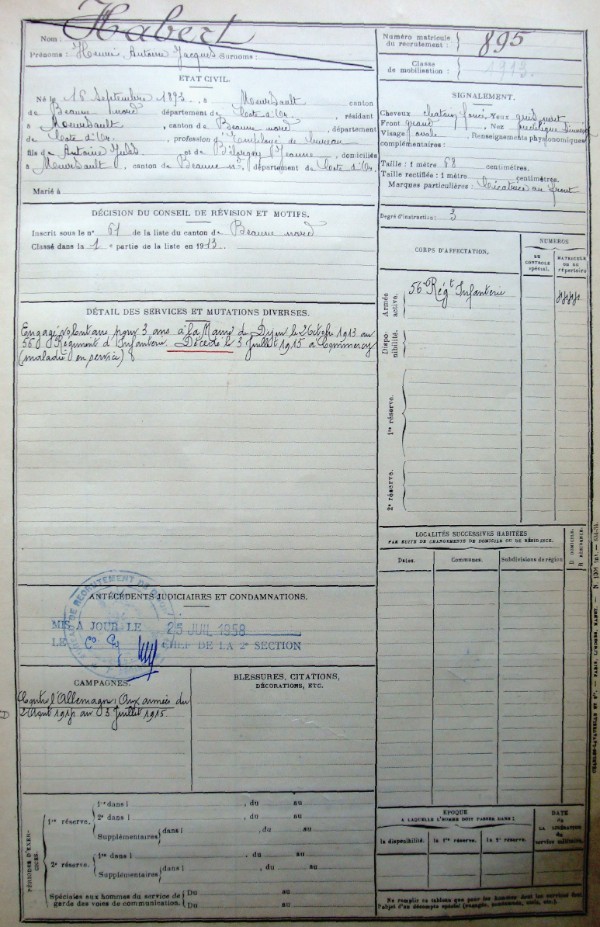 Nom : Habert
Prénoms : Henri, Antoine Jacques Surnoms :
Numéro matricule du recrutement : 895
Classe de mobilisation : 1913.
ÉTAT CIVIL.
Né le 18 Septembre 1893, à Meursault, canton
de Beaune nord, département de Côte d'Or, résidant
à Meursault, canton de Beaune nord, département
de Côte d'Or, profession d'employé de bureau
fils de Antoine Jules et de, domiciliés
à Meursault, canton de Beaune nd, département de Côte d'Or.
Marié à
SIGNALEMENT.
Cheveux châtain foncé Yeux gris vert
Front grand, Nez
Visage ovale, Renseignements physionomiques
complémentaires :
Taille : 1 mètre 68 centimètres.
Taille rectifiée : 1 mètre centimètres.
Marques particulières : Cicatrice au front
Degré d'instruction : 3
DÉCISION DU CONSEIL DE RÉVISION ET MOTIFS.
Inscrit sous le n° 61 de la liste du canton de Beaune nord
Classé dans la 1 e partie de la liste en 1913.
CORPS D'AFFECTATION.
NUMÉROS
AU CONTRÔLE spécial.
MATRICULE OU AU répertoire
Armée active.
56e Régt Infanterie
Disponibilité.
1re réserve.
2e réserve.
DÉTAIL DES SERVICES ET MUTATIONS DIVERSES.
Engagé volontaire pour 3 ans à la Mairie de Dijon le 2 Octobre 1913 au
56e Régiment d'Infanterie. Décédé le 3 Juillet 1915 à Commercy
(maladie en service)
LOCALITÉS SUCCESSIVES HABITÉES
PAR SUITE DE CHANGEMENTS DE DOMICILE OU DE RÉSIDENCE.
Dates. Communes. Subdivisions de région. D DOMICILE. R RÉSIDENCE.
ANTÉCÉDENTS JUDICIAIRES ET CONDAMNATIONS.
BUREAU DE RECRUTEMENT DE
MIS A JOUR LE 25 JUIL 1958
LE CHEF DE LA 2e SECTION
CAMPAGNES.
Contre l'Allemagne : Aux armées du
2 Août 1914 au 3 Juillet 1915.
BLESSURES, CITATIONS,
DÉCORATIONS, ETC.
PÉRIODES D'EXERCICES.
1re réserve.
1re dans l , du au
2e dans l , du au
Supplémentaires dans l , du au
2e réserve.
1re dans l , du au
Supplémentaires dans l , du au
Spéciales aux hommes du service de garde des voies de communication. Du au
Du au
ÉPOQUE
A LAQUELLE L'HOMME DOIT PASSER DANS :
la disponibilité. la 1re réserve. la 2e réserve.
DATE de LA LIBÉRATION du service militaire.
Ne remplir ce tableau que pour les hommes dont les services font
l'objet d'un décompte spécial (engagés, condamnés, exclus, etc.)